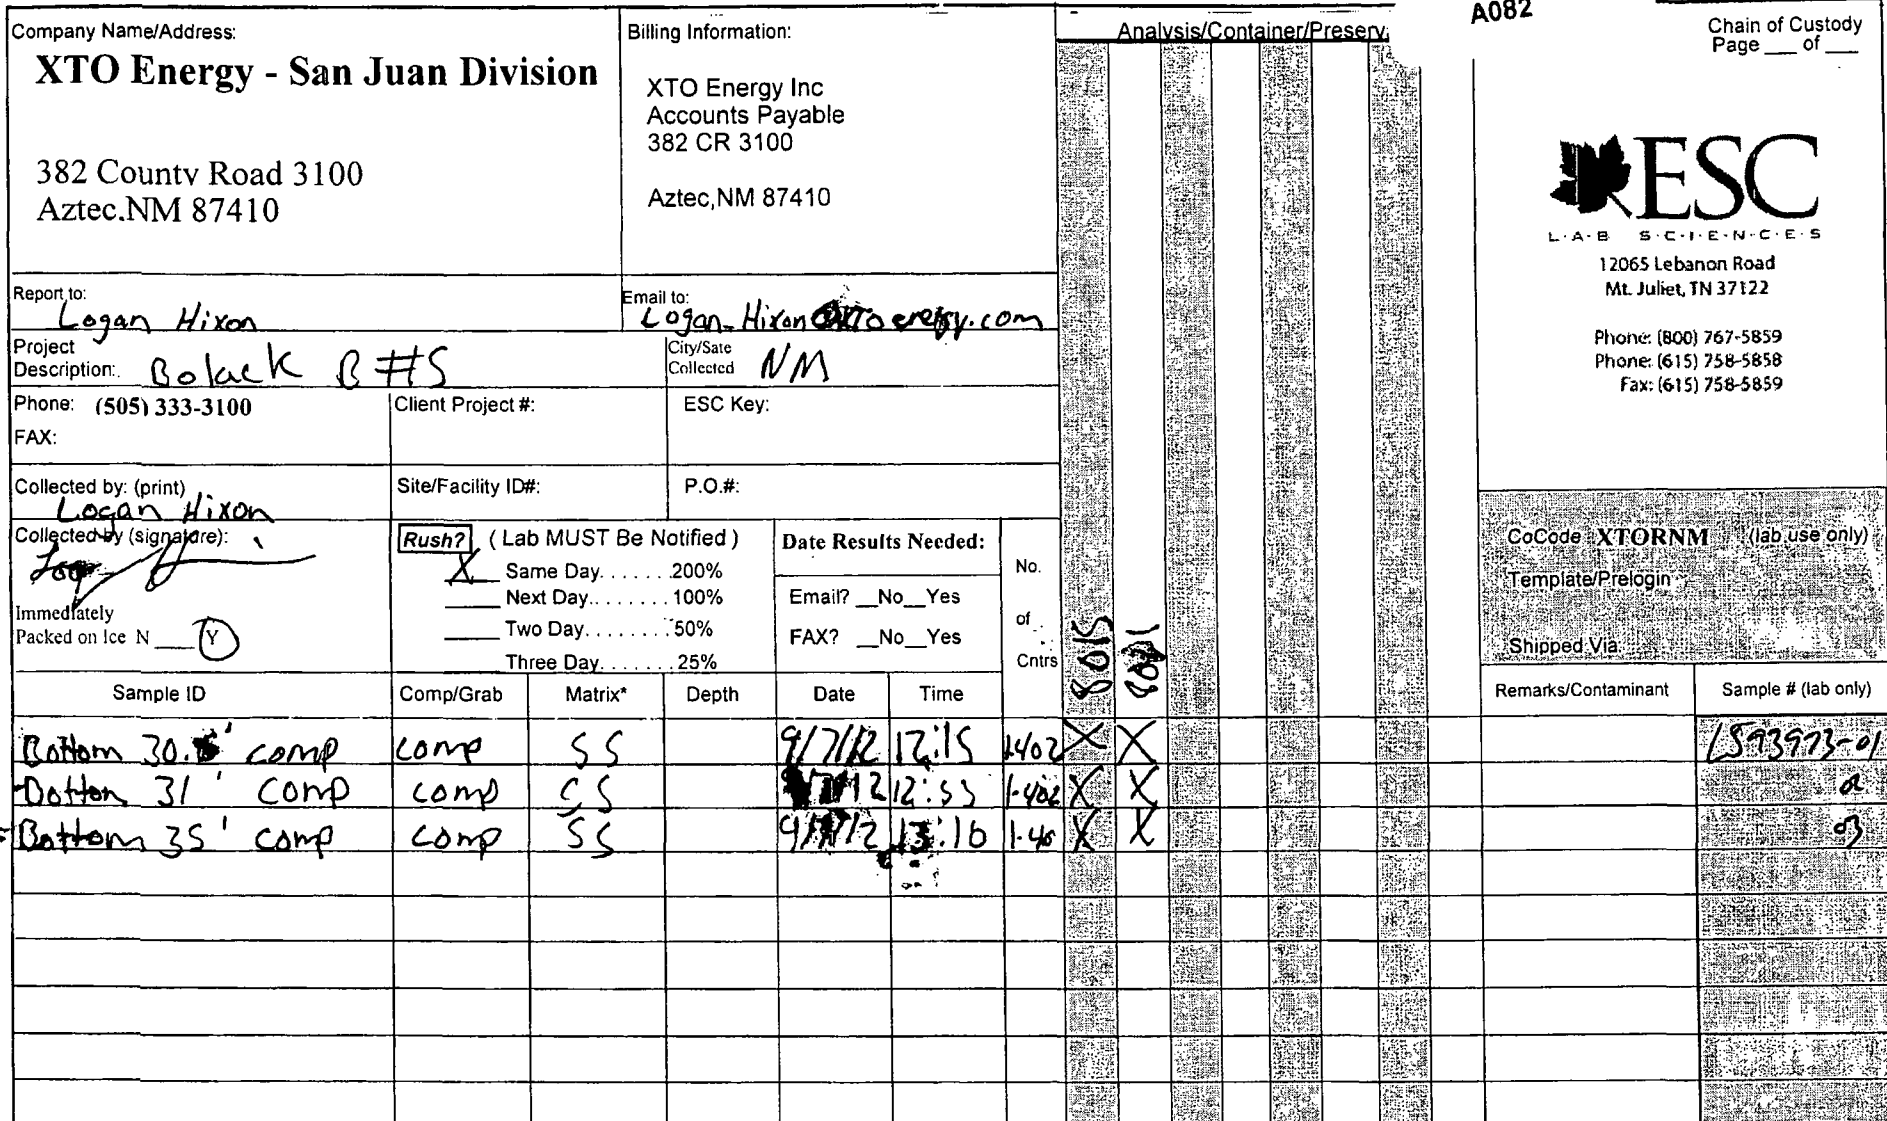 A082
Company Name/Address:
XTO Energy - San Juan Division
382 County Road 3100
Aztec.NM 87410
Billing Information:
XTO Energy Inc
Accounts Payable
382 CR 3100
Aztec,NM 87410
Analysis/Container/Preserv
Chain of Custody
Page ___ of ___
ESC
L·A·B S·C·I·E·N·C·E·S
12065 Lebanon Road
Mt. Juliet, TN 37122
Phone: (800) 767-5859
Phone: (615) 758-5858
Fax: (615) 758-5859
Report to:
Logan Hixon
Email to:
Logan_Hixon@xtoenergy.com
Project
Description: Bolack B #5
City/Sate
Collected NM
Phone: (505) 333-3100
FAX:
Client Project #:
ESC Key:
Collected by: (print)
Logan Hixon
Site/Facility ID#:
P.O.#:
Collected by (signature):
Immediately
Packed on Ice N ___ Y
Rush? ( Lab MUST Be Notified )
X Same Day. . . . . . .200%
___ Next Day.. . . . . . . 100%
___ Two Day. . . . . . . . 50%
Three Day. . . . . . . 25%
Date Results Needed:
Email? __No__Yes
FAX? __No__Yes
No.
of
Cntrs
8015
CoCode XTORNM (lab use only)
Template/Prelogin
Shipped Via:
Sample ID Comp/Grab Matrix* Depth Date Time Remarks/Contaminant Sample # (lab only)
Bottom 30. ' comp comp SS 9/7/12 12:15 1-402 X X L593973-01
Bottom 31 ' comp comp SS 12:53 1-402 X X 02
Bottom 35 ' comp comp SS 13:10 1-40 X X 03